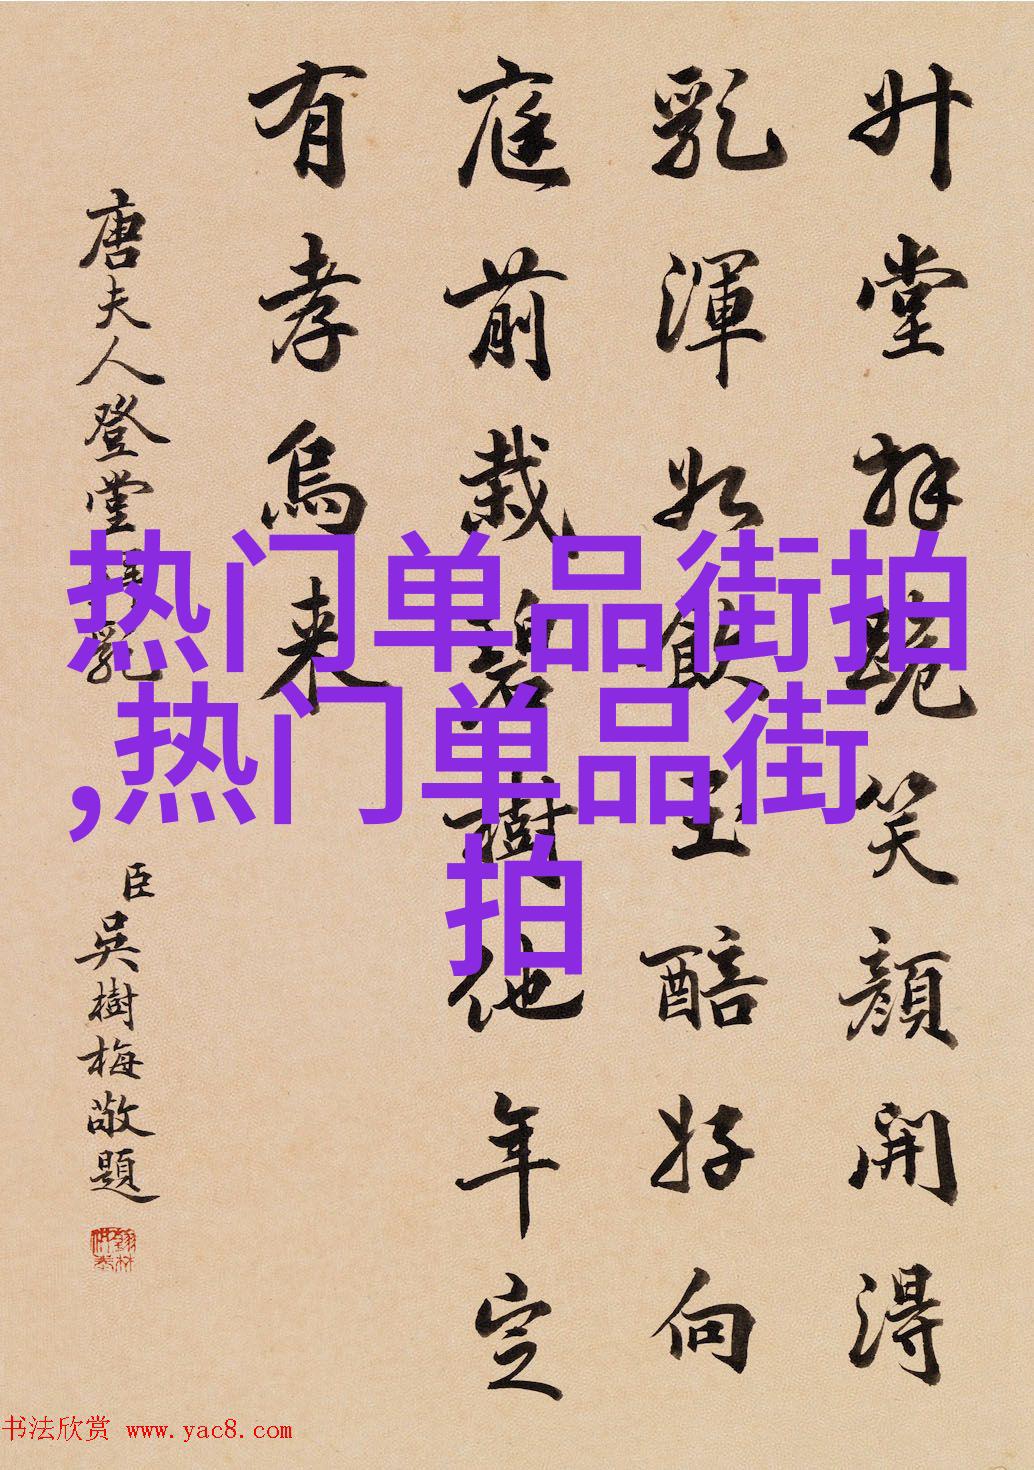 升堂拜跪笑顏開得
乳渾如飲玉醅好向
庭前栽碧樹他年定
有孝烏來
唐夫人登堂拜乳
臣吳樹梅敬題
热门单品街拍
,热门单品街
拍
书法欣赏 www.yac8.com